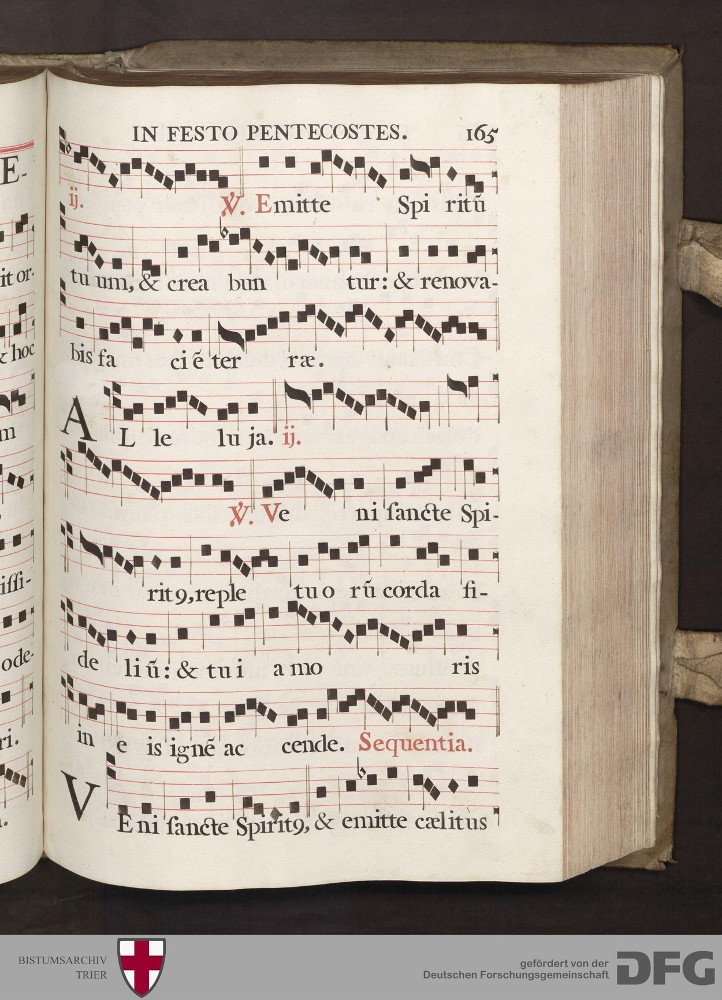 IN FESTO PENTECOSTES. 165
ij. ℣. Emitte Spi ritũ
tu um, & crea bun tur: & renova-
bis fa ci ẽ ter ræ.
AL le lu ja. ij.
℣. Ve ni ſancte Spi-
rit9, reple tu o rũ corda fi-
de li ũ: & tu i a mo ris
in e is ignẽ ac cende. Sequentia.
VE ni ſancte Spirit9, & emitte cælitùs
E-
it or-
& hoc
m
iſſi-
ode-
ri.
BISTUMSARCHIV
TRIER
gefördert von der
Deutschen Forschungsgemeinschaft
DFG